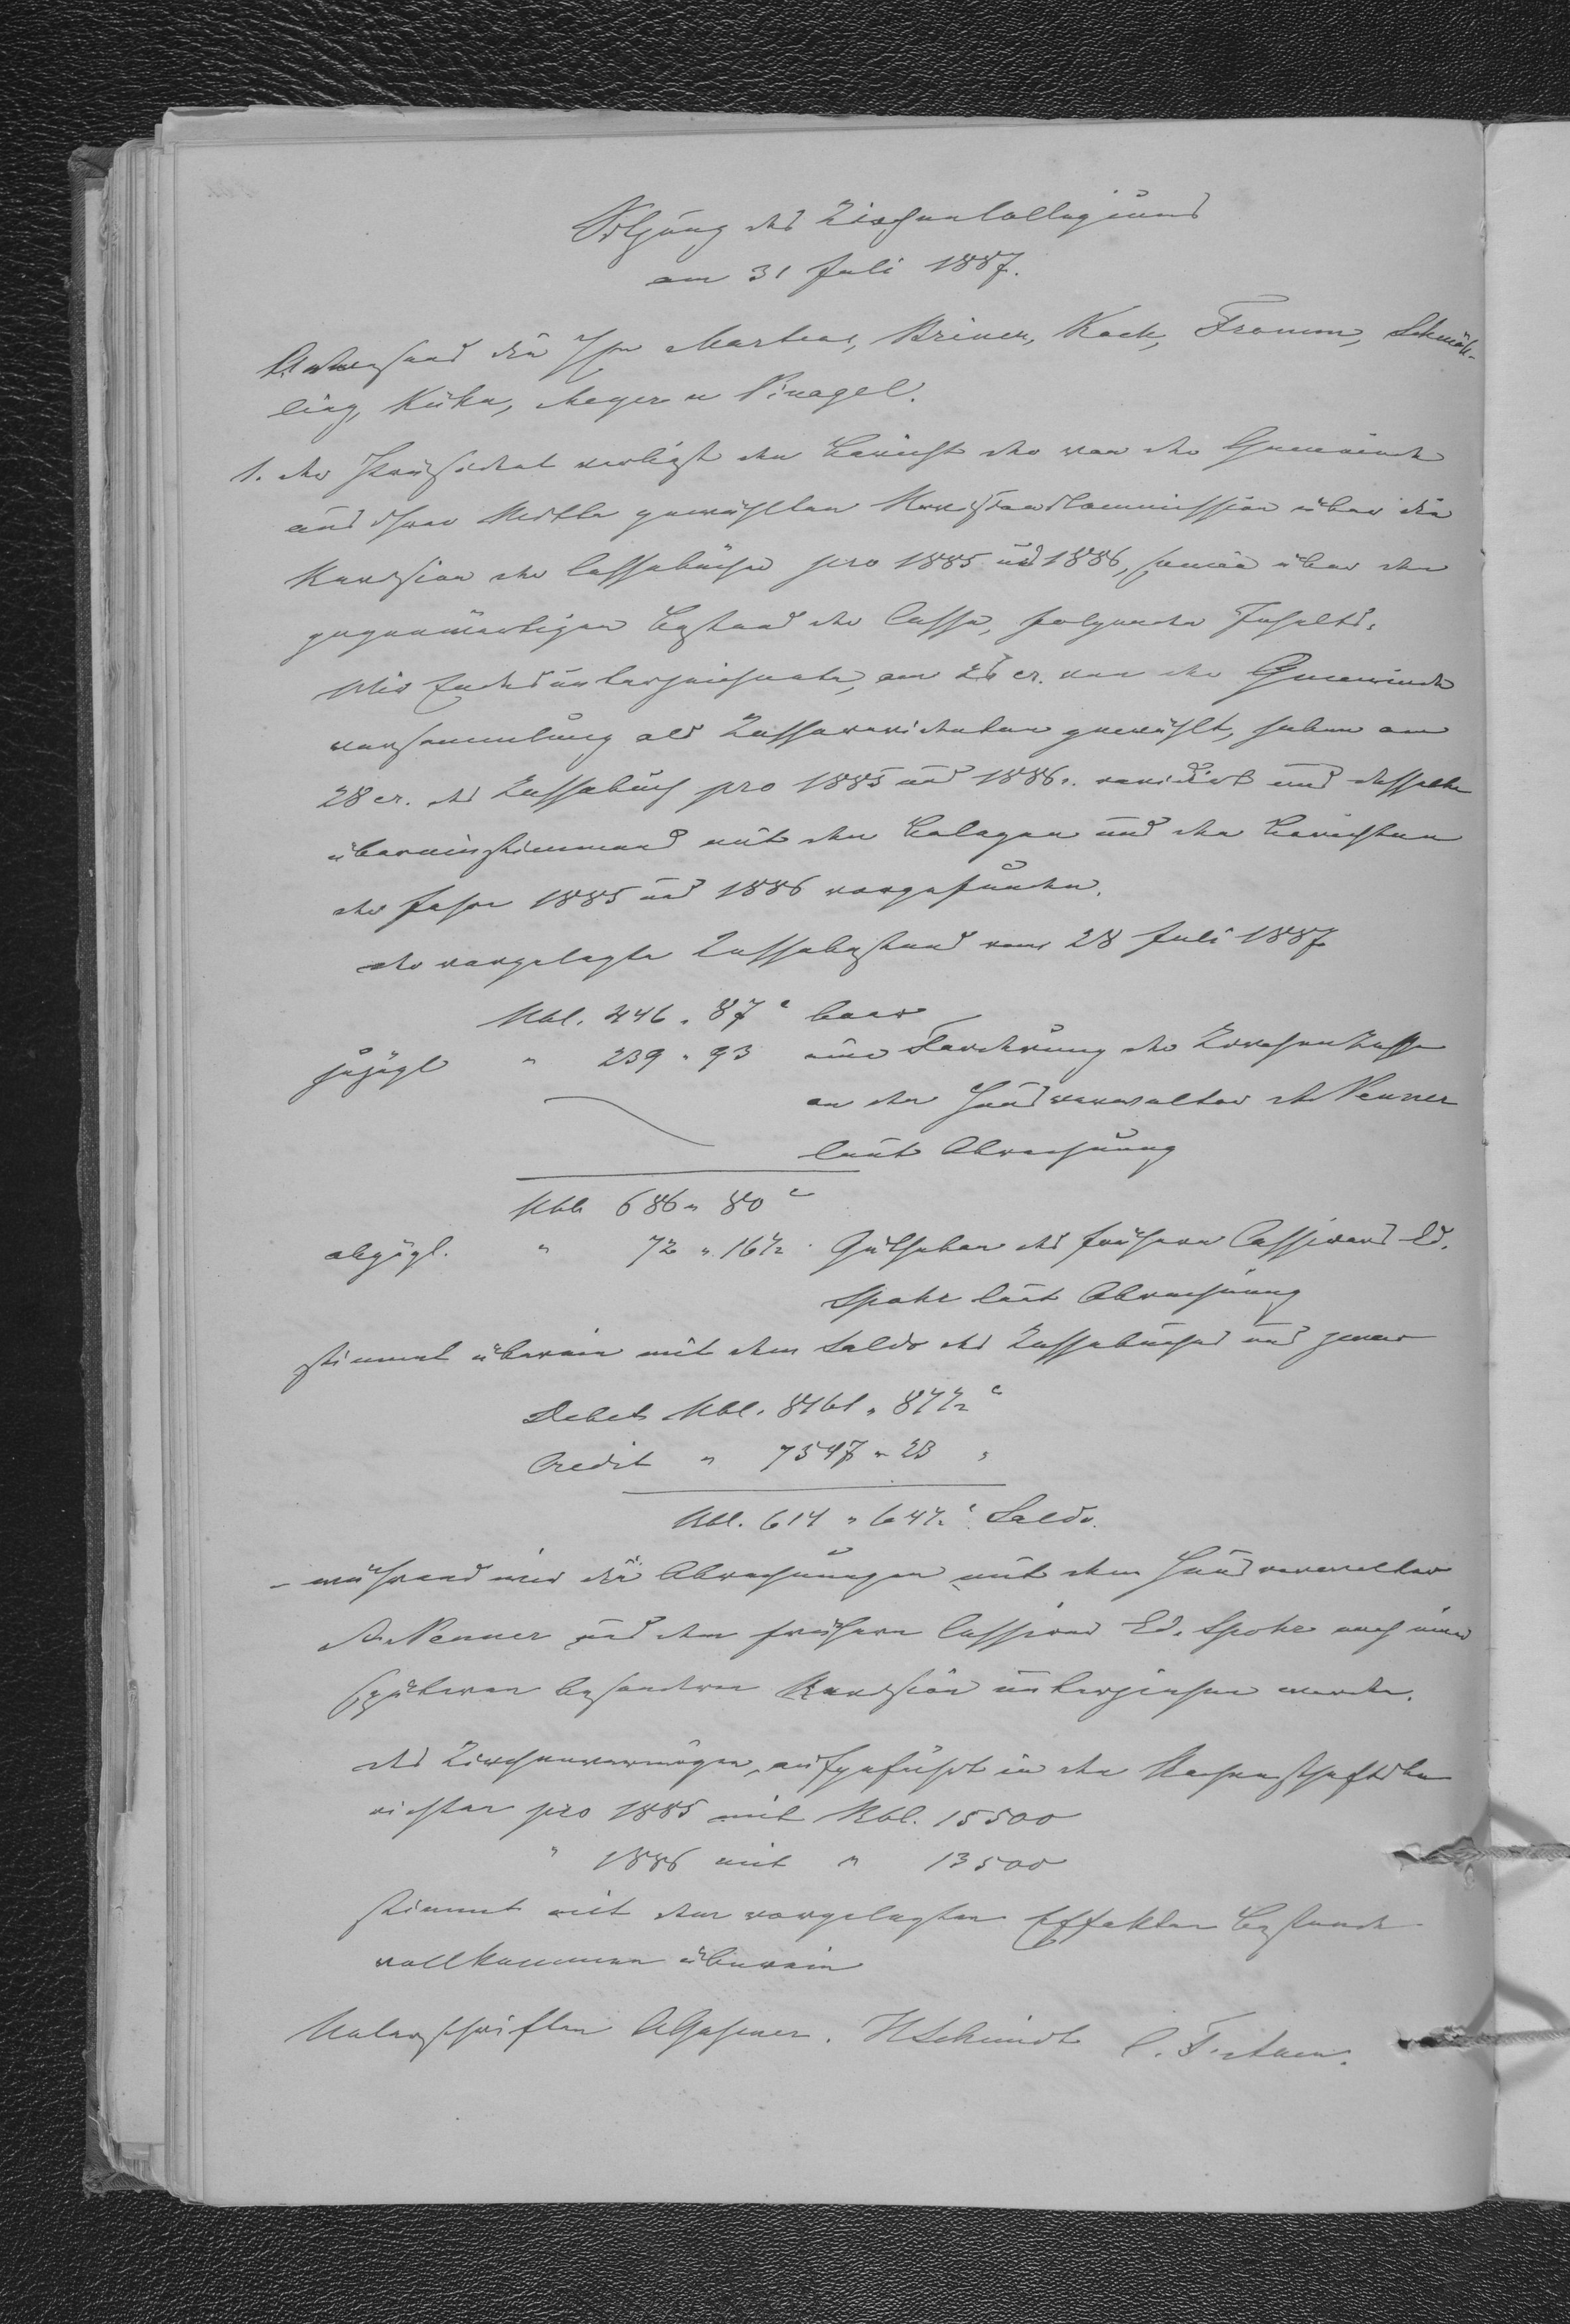 Sitzung des Kirchencollegiums
am 31 Juli 1887.
Anwesend die Hrn Martens, Brinen, Kock, Fromm, Schmöh-
ling, Kühn, Meyer u Pinagel.
1. der Präsident verliest den Bericht der von der Gemeinde
aus ihrer Mitte gewählten Revisionscommission über die
Revision der Cassabücher pro 1885 und 1886, sowie über den
gegenwärtigen Bestand der Cassa, folgenden Inhalts:
Wir Endesunterzeichnete, am 26 cr. von der Gemeinde
versammlung als Kassarevidenten gewählt, haben am
28 cr. das Kassabuch pro 1885 und 1886. revidirt und dasselbe
übereinstimmend mit den Belegen und den Berichten
der Jahre 1885 und 1886 vorgefunden.
der vorgelegte Kassabestand vom 28 Juli 1887
Rbl. 446. 87 c baar
zuzügl " 239 " 93 eine Forderung der Kirchenkasse
an den Hausverwalter A. Nenner
laut Abrechnung
Rbl 686 " 80 c
abzügl. " 72 " 16½ Guthaben des früheren Cassirers Ed.
Spohr laut Abrechnung
stimmt überein mit dem Saldo des Kassabuches und zwar
Debet Rbl. 8161 " 87½ c
Credit " 7547 " 23 "
Rbl. 614 " 64½ c Saldo.
– während wir die Abrechnungen mit dem Hausverwalter
A. Nenner und dem früheren Cassirer Ed. Spohr noch einer
späteren besonderen Revision unterziehen werden.
das Kirchenvermögen, aufgeführt in den Rechenschaftsbe
richten pro 1885 mit Rbl. 15500
" 1886 mit " 13500
stimmt mit dem vorgelegten Effekten Bestande
vollkommen überein
Unterschriften H Schmidt